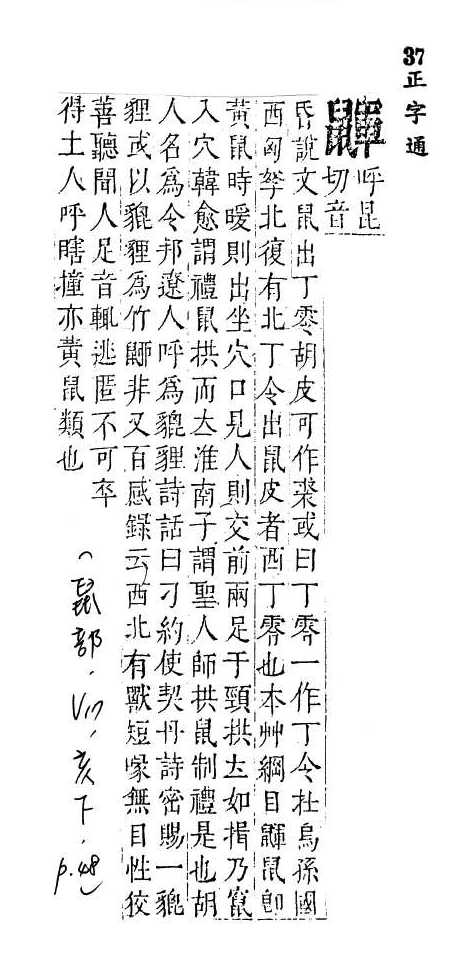 37正字通
鼲
呼昆
切音
昏說文鼠出丁零胡皮可作裘或曰丁零一作丁令在烏孫國
西匈孥北復有北丁令出鼠皮者西丁零也本艸綱目鼲鼠卽
黃鼠時暖則出坐穴口見人則交前兩足于頸拱立如揖乃竄
入穴韓愈謂禮鼠拱而立淮南子謂聖人師拱鼠制禮是也胡
人名爲令邦遼人呼爲貔貍詩話曰刁約使契丹詩密賜一貔
貍或以貔貍爲竹鼦非又百感錄云西北有獸短喙無目性狡
善聽聞人足音輒逃匿不可卒
得土人呼瞎撞亦黃鼠類也
(鼠部,V17,亥下,p.48)